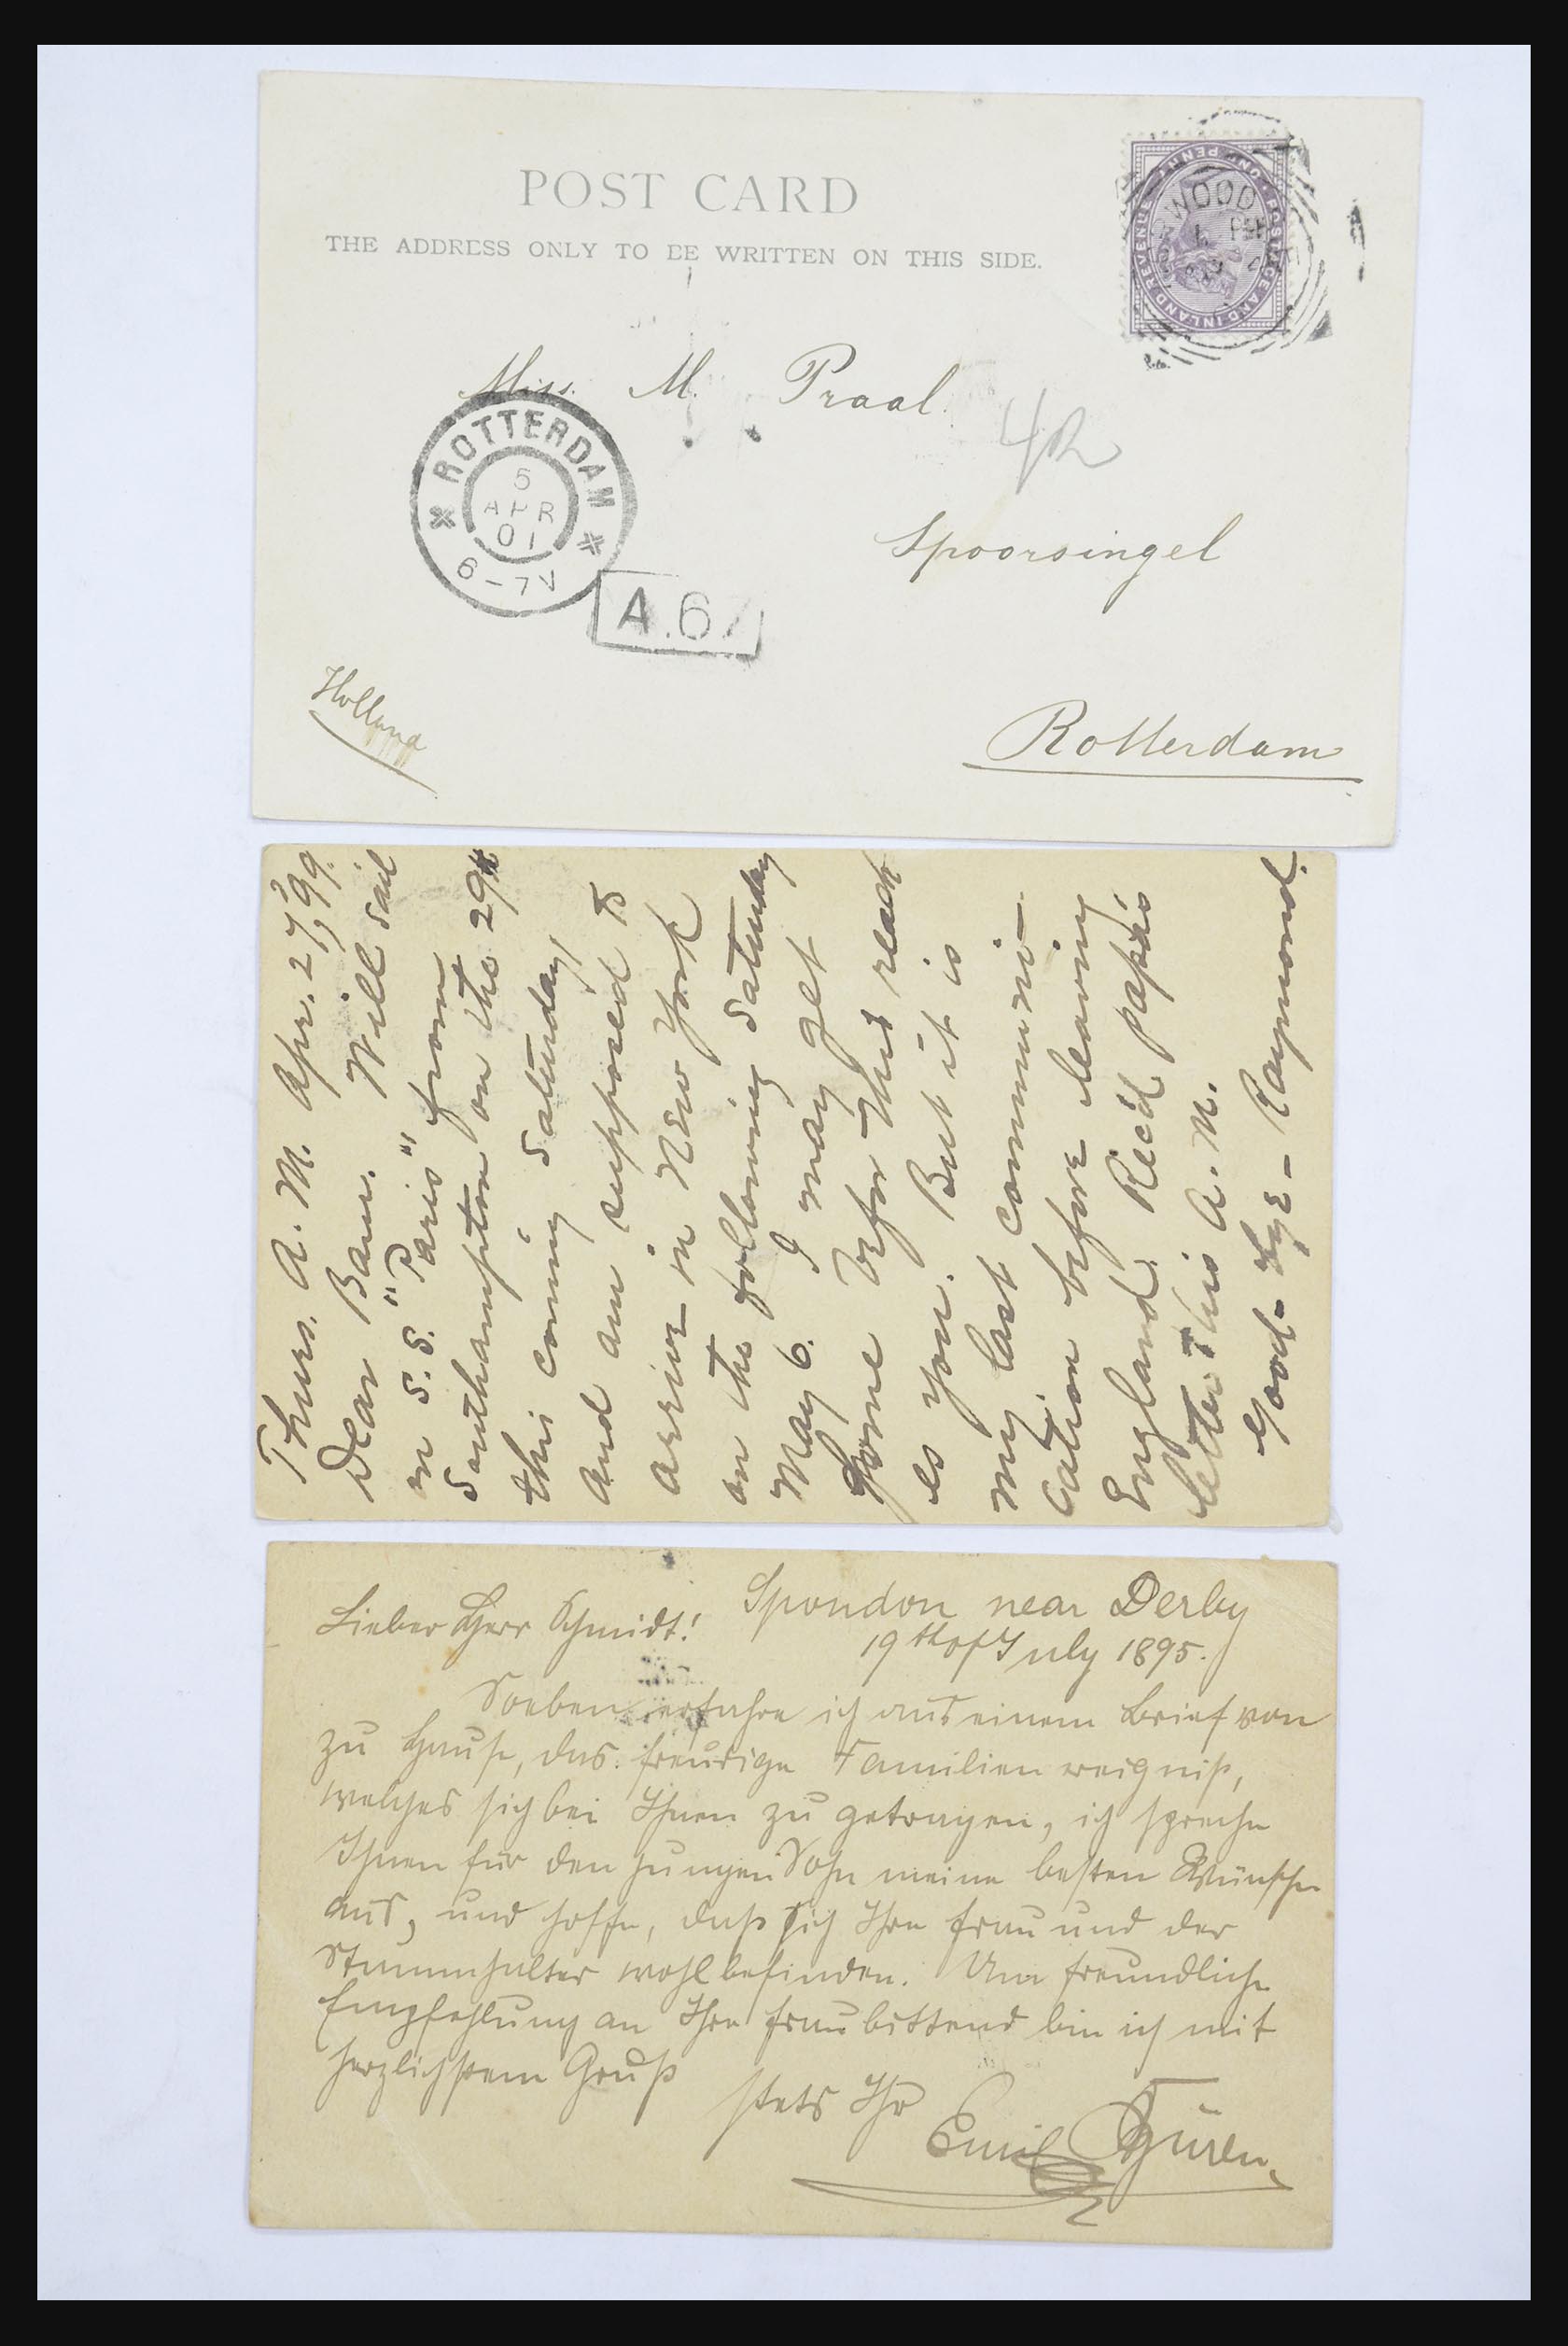 POST CARD
THE ADDRESS ONLY TO BE WRITTEN ON THIS SIDE.
POSTAGE AND INLAND REVENUE
ONE PENNY
WOOD
Miss. M. Praal.
4R
ROTTERDAM
5
APR
01
6-7V
A.67
Spoorsingel
Holland
Rotterdam
Thurs. A. M. Apr. 27, '99.
Dear Bam. Will sail
on S.S. "Paris" from
Southampton on the 29th
this coming Saturday,
and am supposed to
arrive in New York
on the following Saturday
May 6. I may get
home before this reach-
es you. But it is
my last communi-
cation before leaving
England. Rec'd papa's
letter this A. M.
Good-bye - Raymond.
Spondon near Derby
19th of July 1895.
Lieber Herr Schmidt!
Soeben erfahre ich aus einem Brief von
zu Hause, das freudige Familienereigniß,
welches sich bei Ihnen zu getragen, ich spreche
Ihnen für den jungen Sohn meine besten Wünsche
aus, und hoffe, daß sich Ihre Frau und der
Stammhalter wohl befinden. Um freundliche
Empfehlung an Ihre Frau bittend bin ich mit
herzlichstem Gruß
stets Ihr
Emil